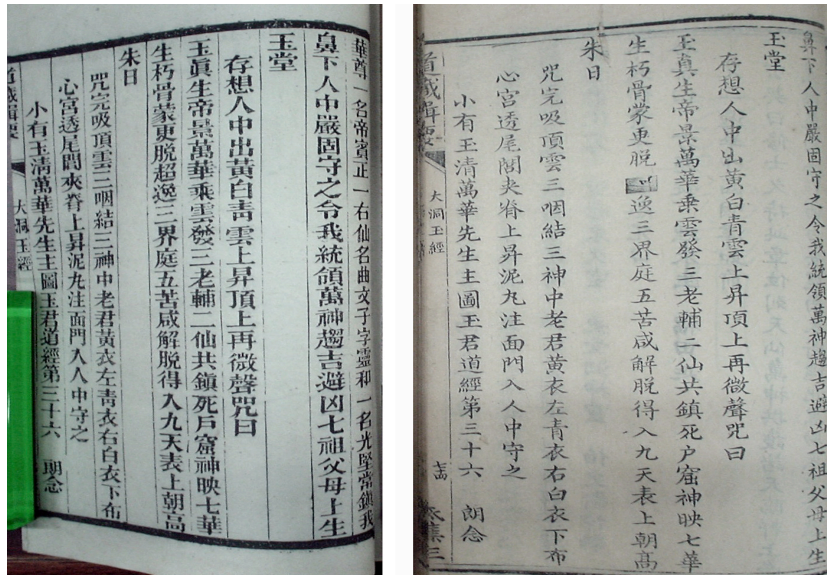 華尊一名帝賓正一右仙名曲文子字靈和一名光堅常鎮我
鼻下人中嚴固守之令我統領萬神趨吉避凶七祖父母上生
玉堂
存想人中出黃白青雲上昇頂上再微聲咒曰
玉眞生帝景萬華乘雲發三老輔二仙共鎮死戶窟神映七華
生朽骨蒙更脫超逸三界庭五苦咸解脫得入九天表上朝高
朱日
咒完吸頂雲三咽結三神中老君黃衣左青衣右白衣下布
心宮透尾閭夾脊上昇泥丸注面門入人中守之
小有玉清萬華先生主圖玉君道經第三十六 朗念
道藏輯要
大洞玉經
鼻下人中嚴固守之令我統領萬神趨吉避凶七祖父母上生
玉堂
存想人中出黃白青雲上昇頂上再微聲咒曰
玉真生帝景萬華乘雲發三老輔二仙共鎮死戶窟神映七華
生朽骨蒙更脫逸三界庭五苦咸解脫得入九天表上朝高
朱日
咒完吸頂雲三咽結三神中老君黃衣左青衣右白衣下布
心宮透尾閭夾脊上昇泥丸注面門入人中守之
小有玉清萬華先生主圖玉君道經第三十六 朗念
道藏輯要
大洞玉經
集三